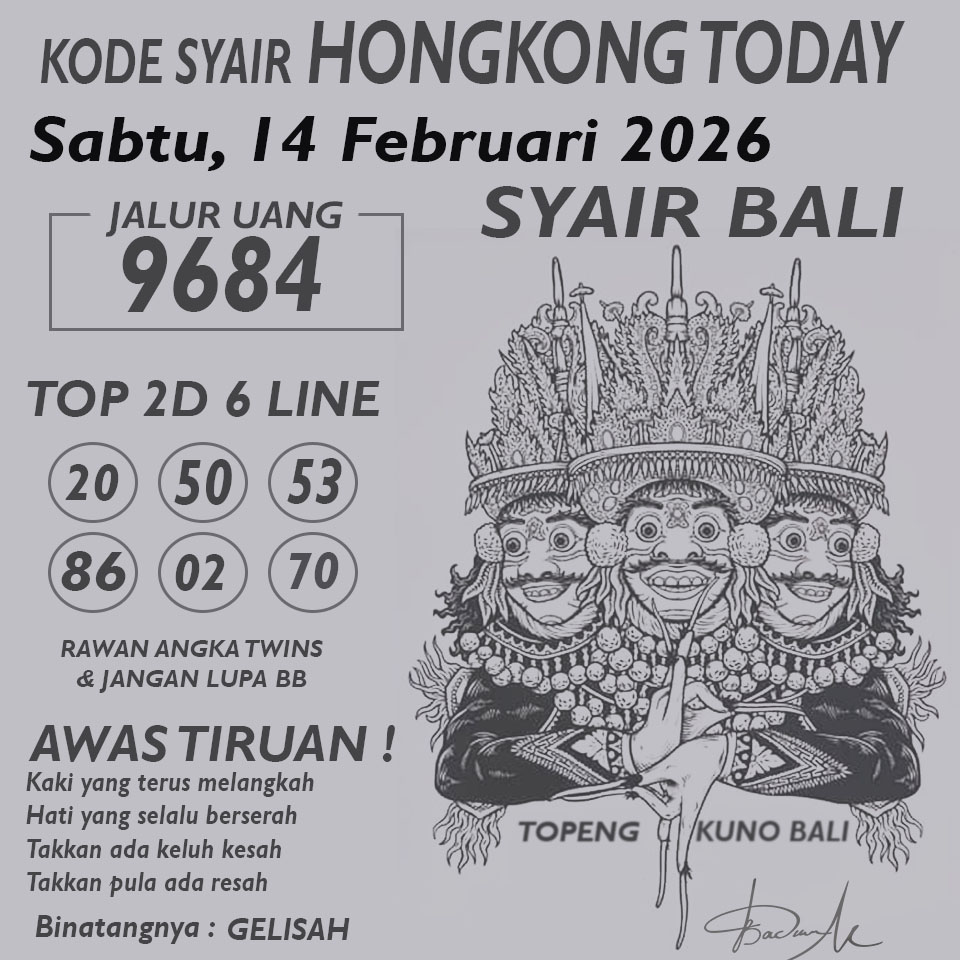 KODE SYAIR HONGKONG TODAY
Sabtu, 14 Februari 2026
SYAIR BALI
JALUR UANG
9684
TOP 2D 6 LINE
20 50 53
86 02 70
RAWAN ANGKA TWINS
& JANGAN LUPA BB
AWAS TIRUAN !
Kaki yang terus melangkah
Hati yang selalu berserah
Takkan ada keluh kesah
Takkan pula ada resah
Binatangnya : GELISAH
TOPENG KUNO BALI